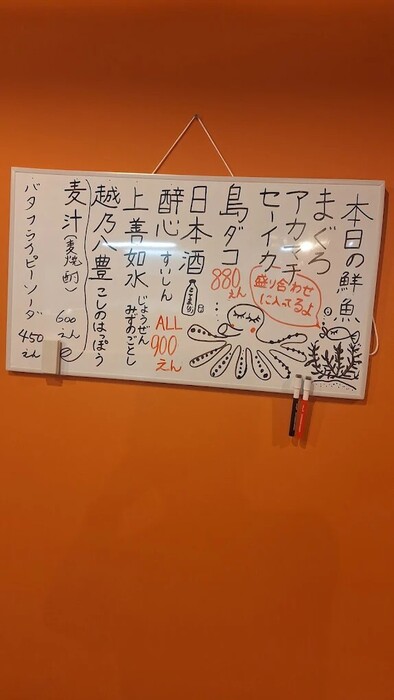 本日の鮮魚
まぐろ
アカマチ
セーイカ
島ダコ
盛り合わせ
に入ってるよ
880
えん
日本酒
酔心 すいしん
上善如水 じょうぜん
みずのごとし
越乃八豊 こしのはっぽう
ALL
900
えん
麦汁(麦焼酎)
600
えん
バタフライピーソーダ
450
えん